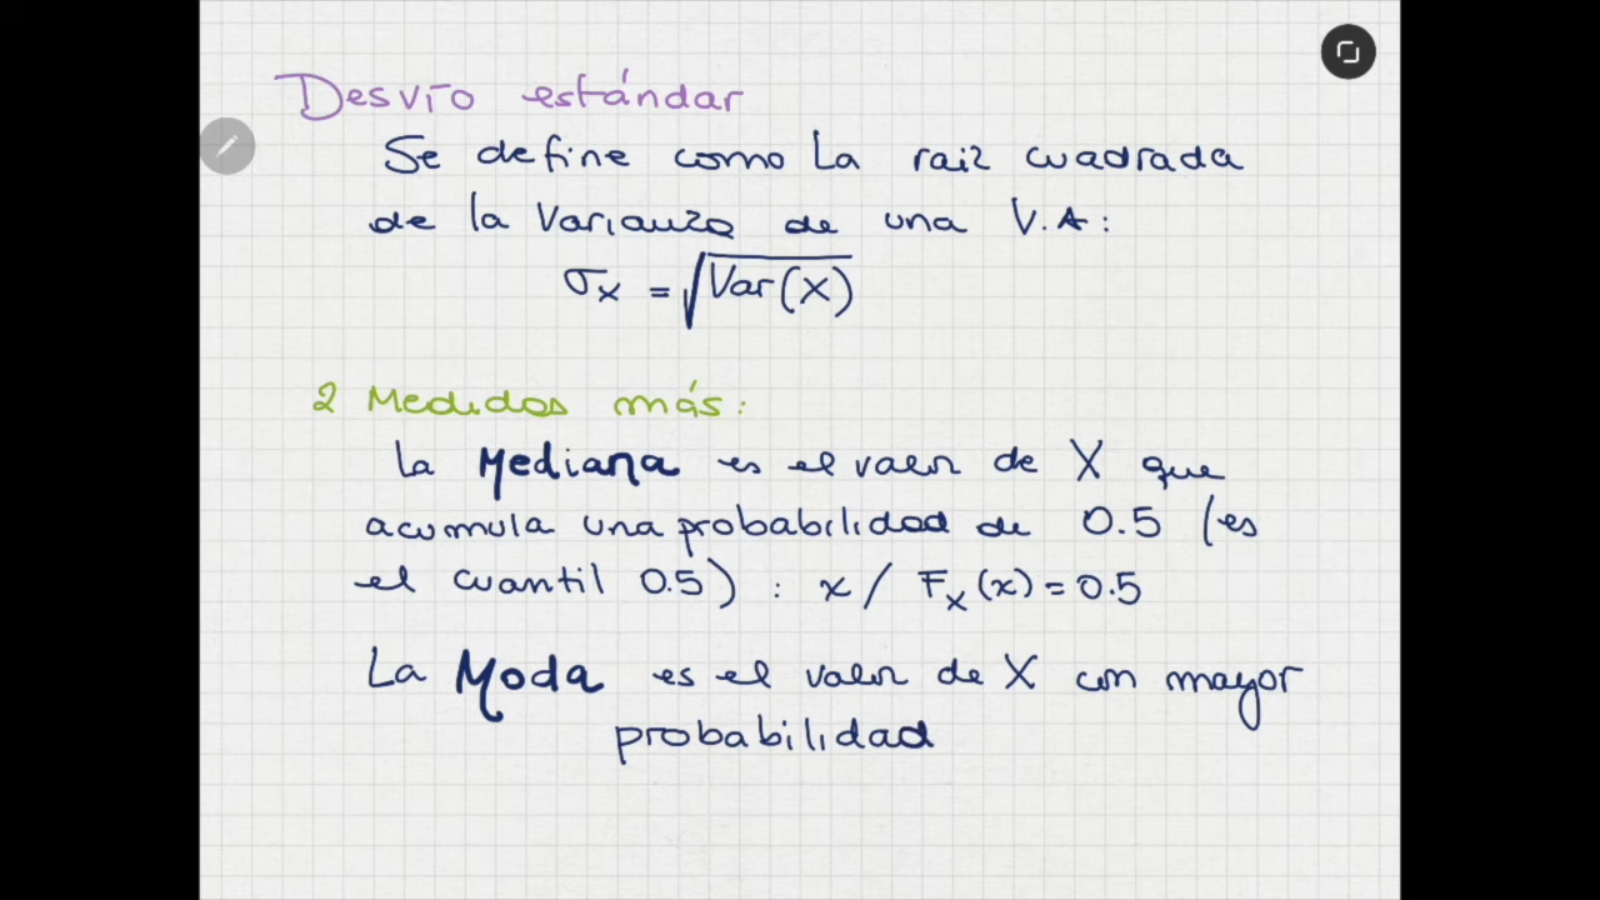 Desvío estándar
Se define como la raiz cuadrada
de la Varianza de una V.A:
σ_X = √Var(X)
2 Medidas más:
La Mediana es el valor de X que
acumula una probabilidad de 0.5 (es
el cuantil 0.5) : x / F_X(x) = 0.5
La Moda es el valor de X con mayor
probabilidad